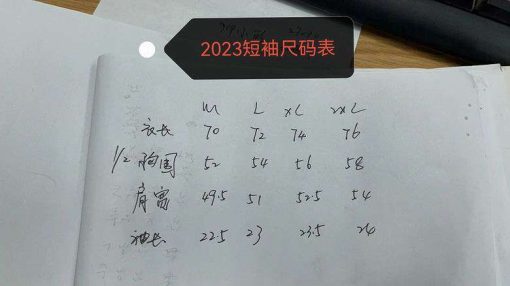 2023短袖尺码表
M L XL 2XL
衣长 70 72 74 76
1/2 胸围 52 54 56 58
肩宽 49.5 51 52.5 54
袖长 22.5 23 23.5 24